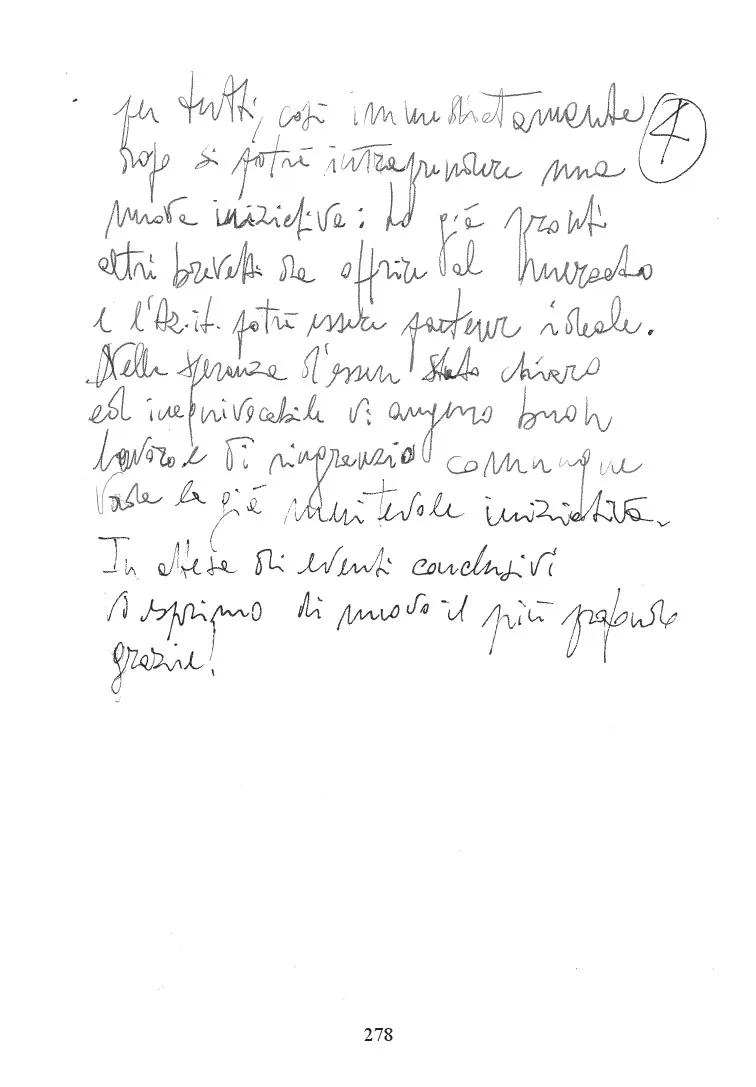 per tutti, così immediatamente 4
dopo si potrà intraprendere una
nuova iniziativa: ho già pronti
altri brevetti da offrire al mercato
e l'Az.it. potrà essere partener ideale.
Nella speranza d'esser stato chiaro
ed inequivocabile Vi auguro buon
lavoro e Vi ringrazio comunque
vada la già meritevole iniziativa.
In attesa di eventi conclusivi
Vi esprimo di nuovo il più profondo
grazie!
278